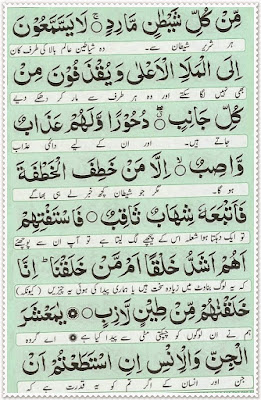 مِّنْ كُلِّ شَيْطٰنٍ مَّارِدٍ ۚ لَا يَسَّمَّعُوْنَ
ہر شریر شیطان سے۔ وہ شیاطین عالم بالا کی طرف کان
اِلَى الْمَلَاِ الْاَعْلٰى وَيُقْذَفُوْنَ مِنْ
بھی نہیں لگا سکتے اور وہ ہر طرف سے مار کر دھکے دیے
كُلِّ جَانِبٍ ۖ دُحُوْرًا وَّلَهُمْ عَذَابٌ
جاتے ہیں۔ اور ان کے لیے دائمی عذاب
وَّاصِبٌ ۙ اِلَّا مَنْ خَطِفَ الْخَطْفَةَ
ہو گا۔ مگر جو شیطان کچھ خبر لے ہی بھاگے
فَاَتْبَعَهٗ شِهَابٌ ثَاقِبٌ ۞ فَاسْتَفْتِهِمْ
تو ایک دہکتا ہوا شعلہ اس کے پیچھے لگ لیتا ہے تو آپ ان سے پوچھئے
اَهُمْ اَشَدُّ خَلْقًا اَمْ مَّنْ خَلَقْنَا ۚ اِنَّا
کہ یہ لوگ بناوٹ میں زیادہ سخت ہیں یا ہماری پیدا کی ہوئی یہ چیزیں (کیونکہ)
خَلَقْنٰهُمْ مِّنْ طِيْنٍ لَّازِبٍ ۞ يٰمَعْشَرَ
ہم نے ان لوگوں کو چپکتی مٹی سے پیدا کیا ہے اے گروہ
الْجِنِّ وَالْاِنْسِ اِنِ اسْتَطَعْتُمْ اَنْ
جن اور انسان کے اگر تم کو یہ قدرت ہے کہ